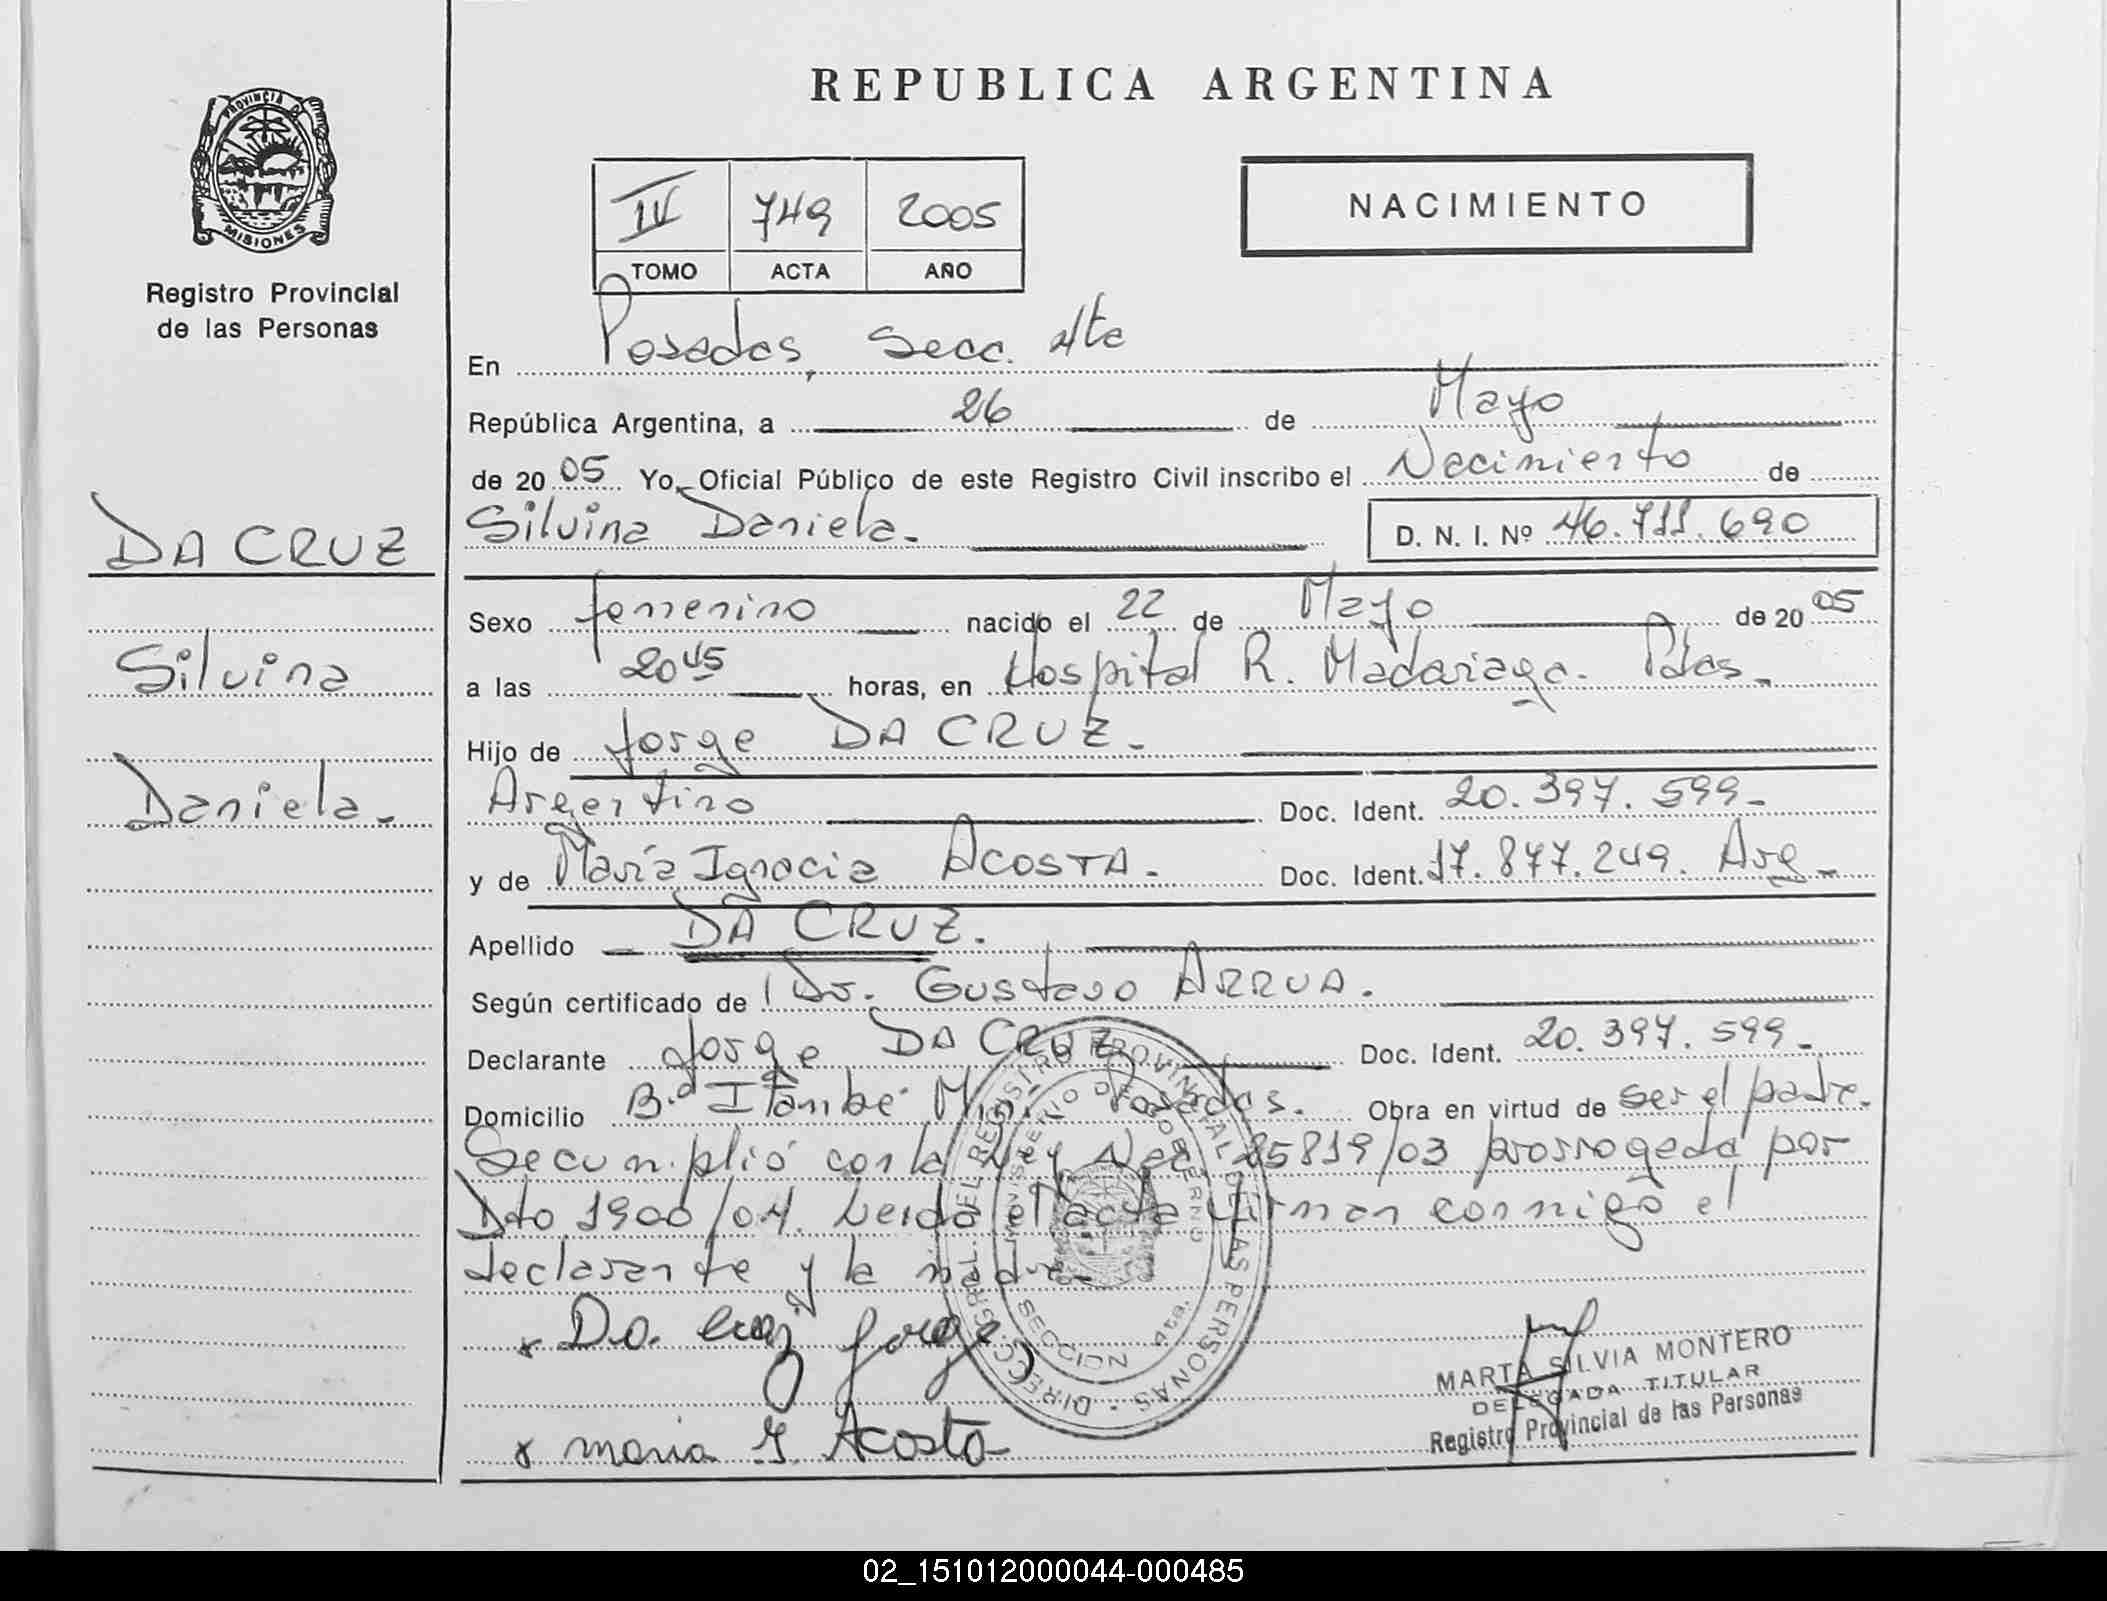 REPUBLICA ARGENTINA
PROVINCIA DE
MISIONES
Registro Provincial
de las Personas
IV 749 2005
TOMO ACTA AÑO
NACIMIENTO
En Posadas, Secc. 4ta
República Argentina, a 26 de Mayo
de 2005 Yo, Oficial Público de este Registro Civil inscribo el Nacimiento de
DA CRUZ
Silvina Daniela.- D. N. I. Nº 46.711.690
Sexo femenino nacido el 22 de Mayo de 2005
Silvina
a las 20 45 horas, en Hospital R. Madariaga. Pdas.-
Hijo de Jorge DA CRUZ.-
Daniela.-
Argentino Doc. Ident. 20.397.599.-
y de María Ignacia ACOSTA.- Doc. Ident. 17.877.249. Arg.-
Apellido DA CRUZ.
Según certificado de Dr. Gustavo ARRUA.
Declarante Jorge DA CRUZ Doc. Ident. 20.397.599.-
Domicilio B.º Itambé Mini Posadas. Obra en virtud de ser el padre.
Se cumplió con la Ley Nac. 25819/03 prorrogada por
Dto 1900/04. Leida el acta firman conmigo el
declarante y la madre.-
x Da. cruz jorge
x maria I. Acosta
DIRECC. GRAL. DEL REGISTRO PROVINCIAL DE LAS PERSONAS
MINISTERIO DE GOBIERNO
SECCION 4ta.
MARTA SILVIA MONTERO
DELEGADA TITULAR
Registro Provincial de las Personas
02_151012000044-000485